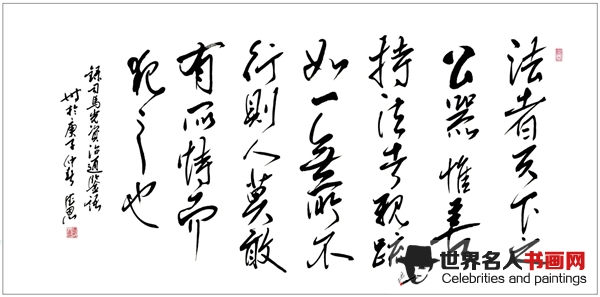 法者天下之
公器惟善
持法者親疏
如一無所不
行則人莫敢
有所恃而
犯之也
錄司馬光資治通鑒語
時於庚子仲
世界名人书画网
Celebrities and paintings